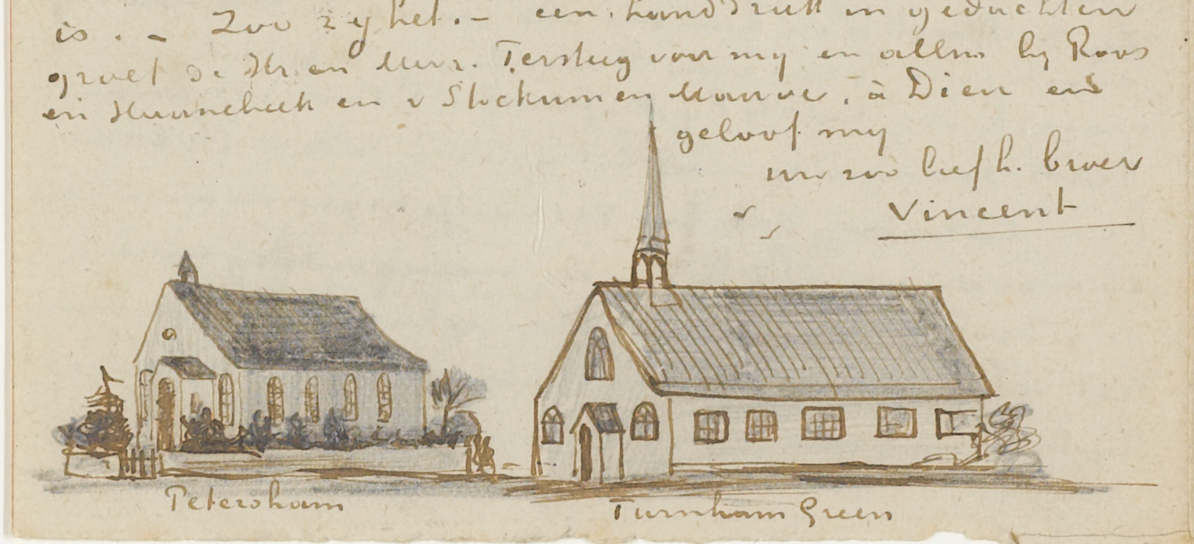 is. – Zoo zy het. – een handdruk in gedachten
groet de Hr en Mevr. Tersteeg voor my en allen by Roos
en Haanebeek en v Stockum en Mauve, à Dieu en
geloof my
uw zoo liefh. broer
Vincent
Petersham
Turnham Green